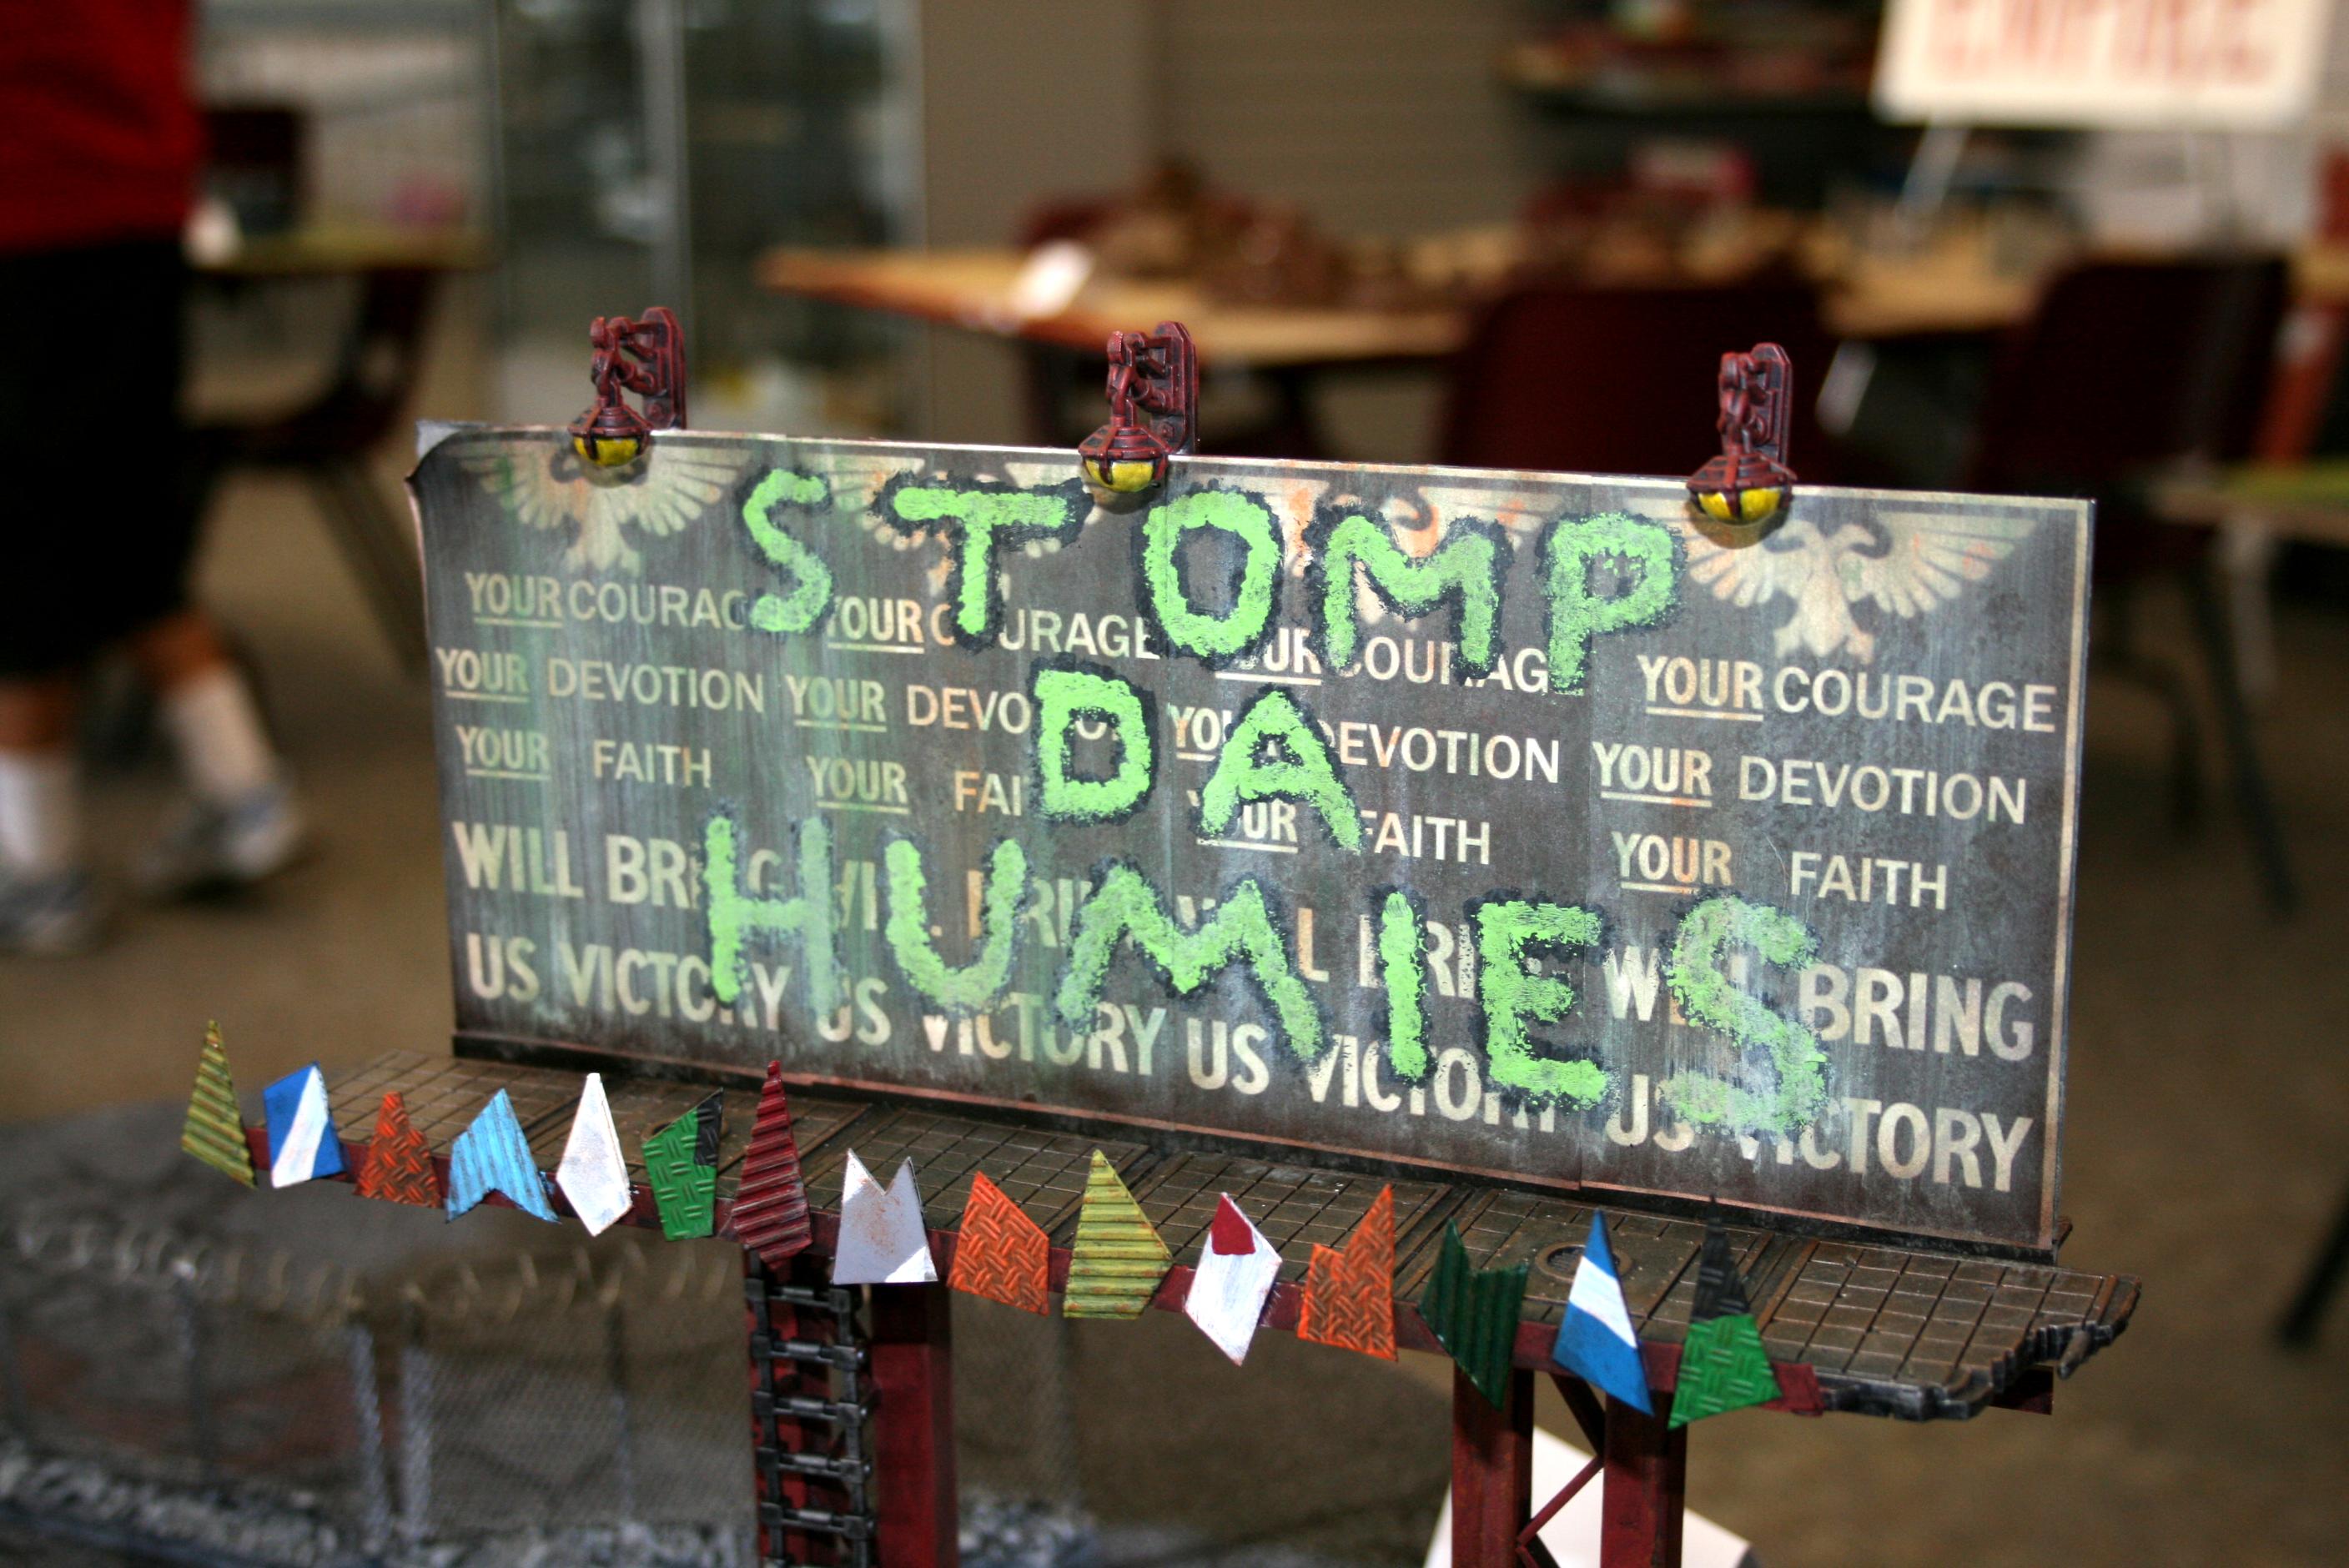 STOMP
DA
HUMIES
YOUR COURAGE YOUR COURAGE YOUR COURAGE YOUR COURAGE
YOUR DEVOTION YOUR DEVOTION YOUR DEVOTION YOUR DEVOTION
YOUR FAITH YOUR FAITH YOUR FAITH YOUR FAITH
WILL BRING WILL BRING WILL BRING WILL BRING
US VICTORY US VICTORY US VICTORY US VICTORY